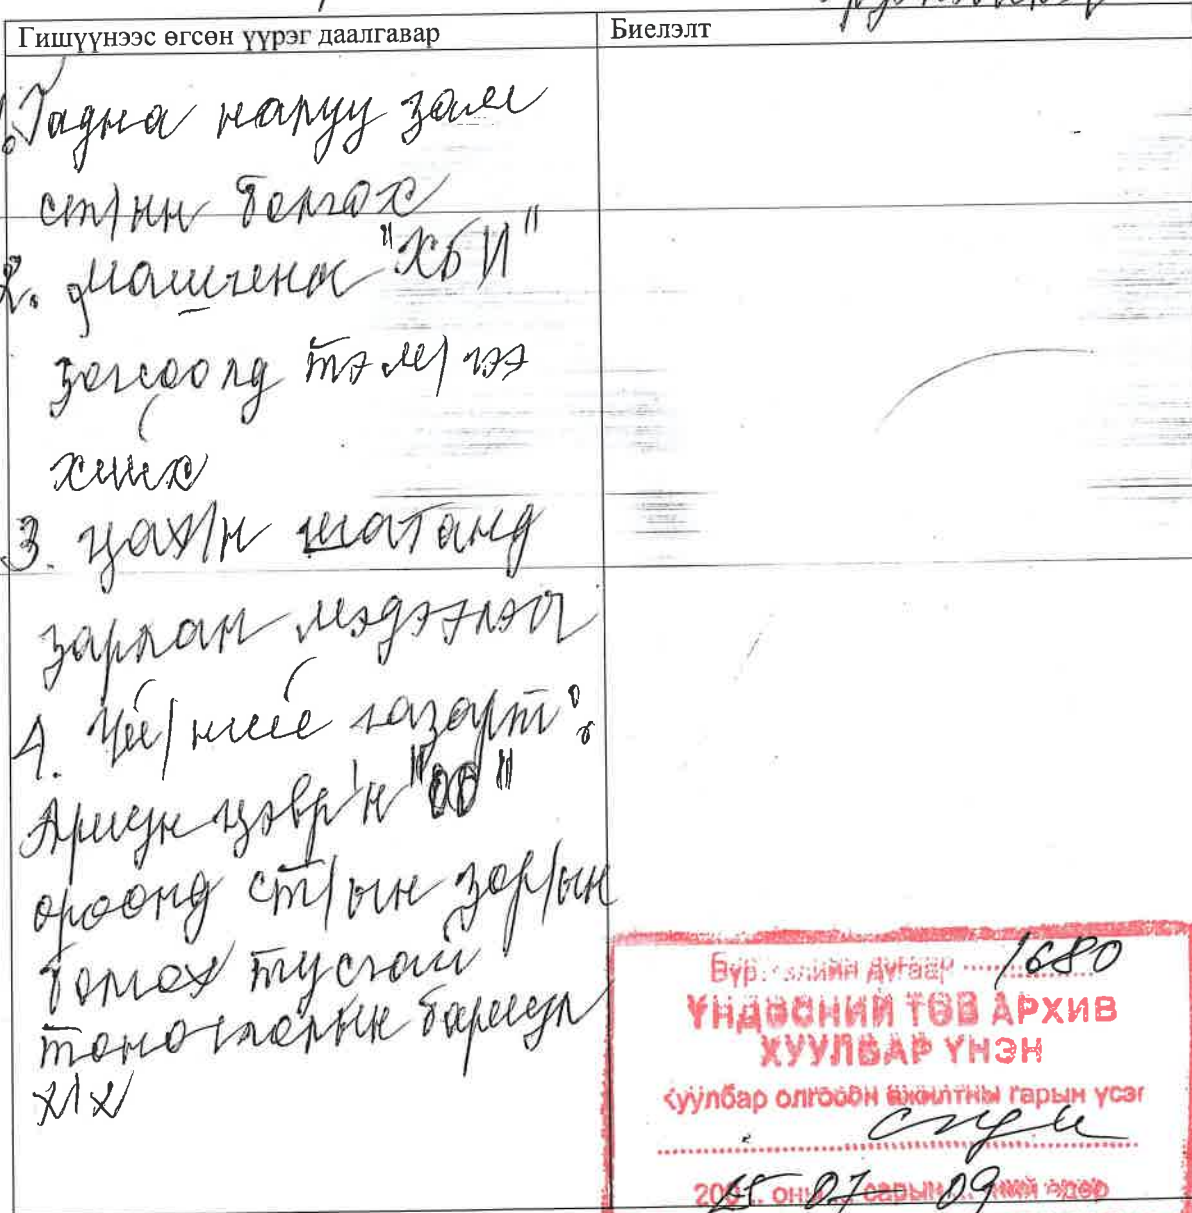 Гишүүнээс өгсөн үүрэг даалгавар
Биелэлт
1. Гадна налуу зам
ст/нн болгох
2. Машины "ХБИ"
зогсоолд тэм/гээ
хийх
3. цах/н шатанд
зарлан мэдээлэл
4. Үй/ний газарт:
Ариун цэвр'н "00"
өрөөнд ст/ын зор/ын
болгох тусгай
тоноглолын бариул
х/х
Бүр. дугаар 1680
ҮНДЭСНИЙ ТӨВ АРХИВ
ХУУЛБАР ҮНЭН
Хуулбар олгосон ажилтны гарын үсэг
20 25 он 07 сарын 09 ний өдөр